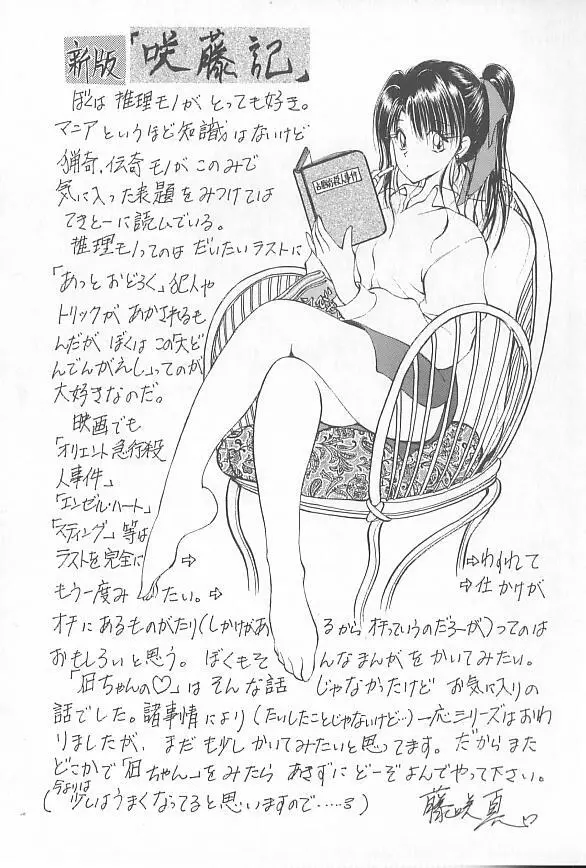 新版「咲藤記」
ぼくは推理モノがとっても好き。
マニアというほど知識はないけど
猟奇、伝奇モノがこのみで
気に入った表題をみつけては
てきとーに読んでいる。
推理モノってのはだいたいラストに
「あっとおどろく」犯人や
トリックがあかされるも
んだが ぼくはこの「大ど
んでんがえし」ってのが
大好きなのだ。
映画でも
「オリエント急行殺
人事件」
「エンゼル・ハート」
「スティング」等は
ラストを完全に⇨
⇨わすれて
もう一度みたい。⇨
⇨仕かけが
オチにあるものがたり(しかけがあるからオチっていうのだろーが)ってのは
おもしろいと思う。ぼくもそんなまんがをかいてみたい。
「ちゃんの♡」はそんな話じゃなかったけど お気に入りの
話でした。諸事情により(たいしたことじゃないけど…)一応シリーズはおわ
りましたが、まだも少しかいてみたいと思ってます。だからまた
どこかで「ちゃん」をみたらあきずにどーぞよんでやって下さい。
(今よりは少しはうまくなってると思いますので……)
藤咲真
殺人事件